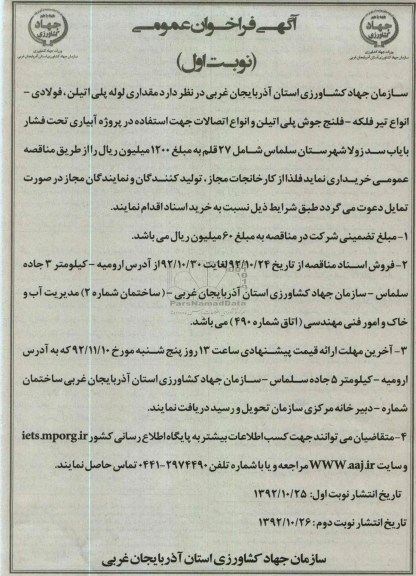 آگهی فراخوان عمومی
(نوبت اول)
جهاد کشاورزی
وزارت جهاد کشاورزی
سازمان جهاد کشاورزی استان آذربایجان غربی
جهاد کشاورزی
وزارت جهاد کشاورزی
سازمان جهاد کشاورزی استان آذربایجان غربی
سازمان جهاد کشاورزی استان آذربایجان غربی در نظر دارد مقداری لوله پلی اتیلن ، فولادی -
انواع تیر فلکه - فلنج جوش پلی اتیلن و انواع اتصالات جهت استفاده در پروژه آبیاری تحت فشار
پایاب سد زولا شهرستان سلماس شامل ۲۷ قلم به مبلغ ۱۲۰۰ میلیون ریال را از طریق مناقصه
عمومی خریداری نماید فلذا از کارخانجات مجاز ، تولید کنندگان و نمایندگان مجاز در صورت
تمایل دعوت می گردد طبق شرایط ذیل نسبت به خرید اسناد اقدام نمایند.
۱- مبلغ تضمینی شرکت در مناقصه به مبلغ ۶۰ میلیون ریال می باشد.
۲- فروش اسناد مناقصه از تاریخ ۹۲/۱۰/۲۴ لغایت ۹۲/۱۰/۳۰ از آدرس ارومیه - کیلومتر ۳ جاده
سلماس - سازمان جهاد کشاورزی استان آذربایجان غربی - (ساختمان شماره ۲) مدیریت آب و
خاک و امور فنی مهندسی (اتاق شماره ۴۹۰) می باشد.
ParsNamadData
۳- آخرین مهلت ارائه قیمت پیشنهادی ساعت ۱۳ روز پنج شنبه مورخ ۹۲/۱۱/۱۰ که به آدرس
ارومیه - کیلومتر ۵ جاده سلماس - سازمان جهاد کشاورزی استان آذربایجان غربی ساختمان
شماره - دبیر خانه مرکزی سازمان تحویل و رسید دریافت نمایند.
۴- متقاضیان می توانند جهت کسب اطلاعات بیشتر به پایگاه اطلاع رسانی کشور iets.mporg.ir
و سایت WWW.aaj.ir مراجعه و یا با شماره تلفن ۲۹۷۴۴۹۰-۰۴۴۱ تماس حاصل نمایند.
تاریخ انتشار نوبت اول: ۱۳۹۲/۱۰/۲۵
تاریخ انتشار نوبت دوم: ۱۳۹۲/۱۰/۲۶
سازمان جهاد کشاورزی استان آذربایجان غربی